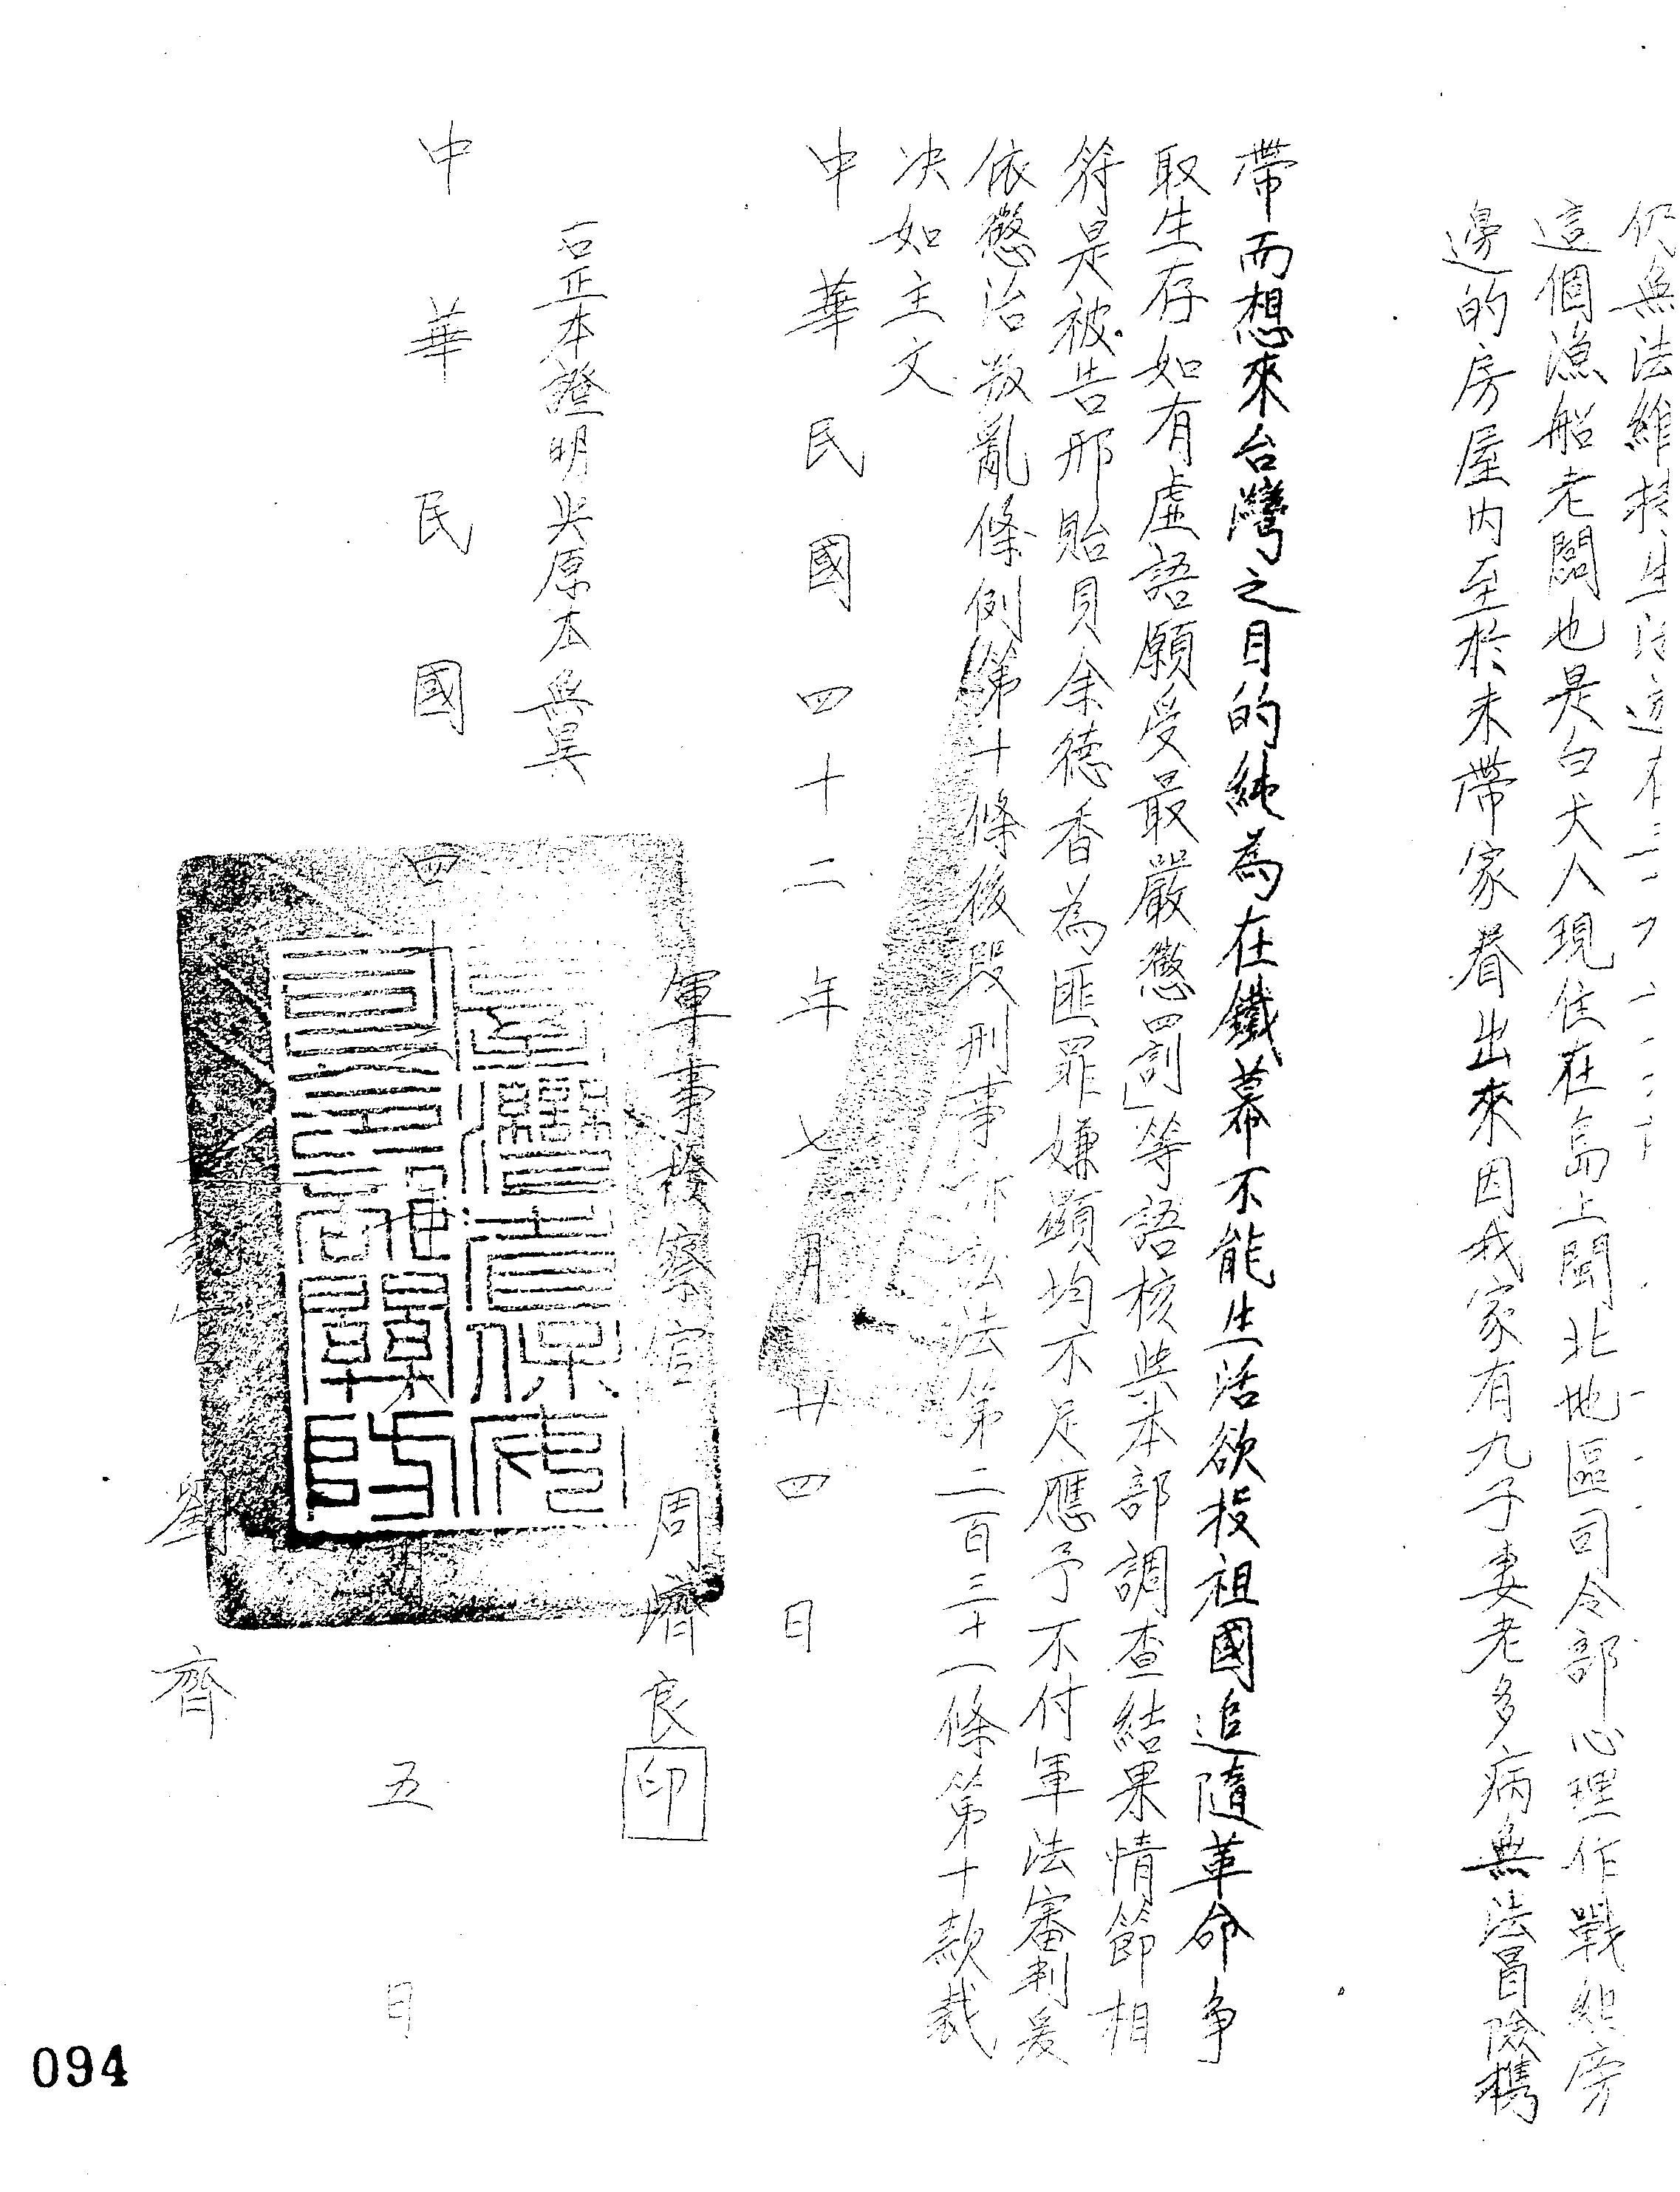 仍無法維持生活
這個漁船老闆也是白犬人現住在島上閩北地區司令部心理作戰組旁
邊的房屋內至於未帶家眷出來因我家有九子妻老多病無法冒險携
帶而想來台灣之目的純為在鐵幕不能生活欲投祖國追隨革命爭
取生存如有虛語願受最嚴懲罰」等語核與本部調查結果情節相
符是被告邢貽貝余德香為匪罪嫌顯均不足應予不付軍法審判爰
依懲治叛亂條例第十條後段刑事訴訟法第二百三十一條第十款裁
決如主文
中華民國四十二年七月廿四日
軍事檢察官 周濟良 印
右正本證明與原本無異
中華民國四 月 五 日
劉 齊
094